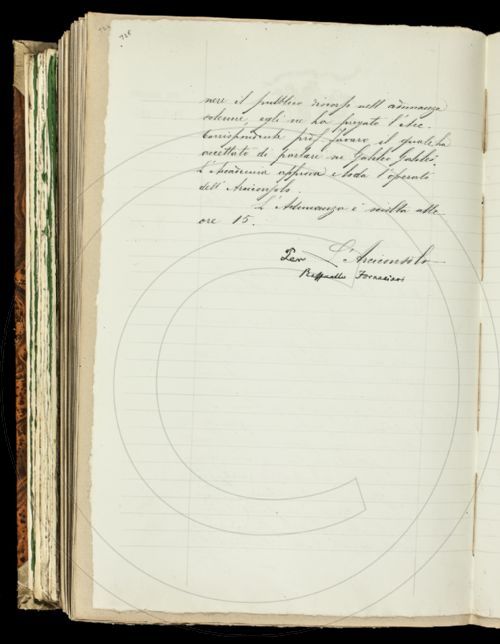 728
nere il pubblico discorso nell'adunanza
solenne, egli ne ha pregato l'Acc.
Corrispondente prof. Favaro, il quale ha
accettato di parlare su Galileo Galilei.
L'Accademia approva e loda l'operato
dell'Arciconsolo.
L'Adunanza è sciolta alle
ore 15.
Per L'Arciconsolo
Raffaello Fornaciari